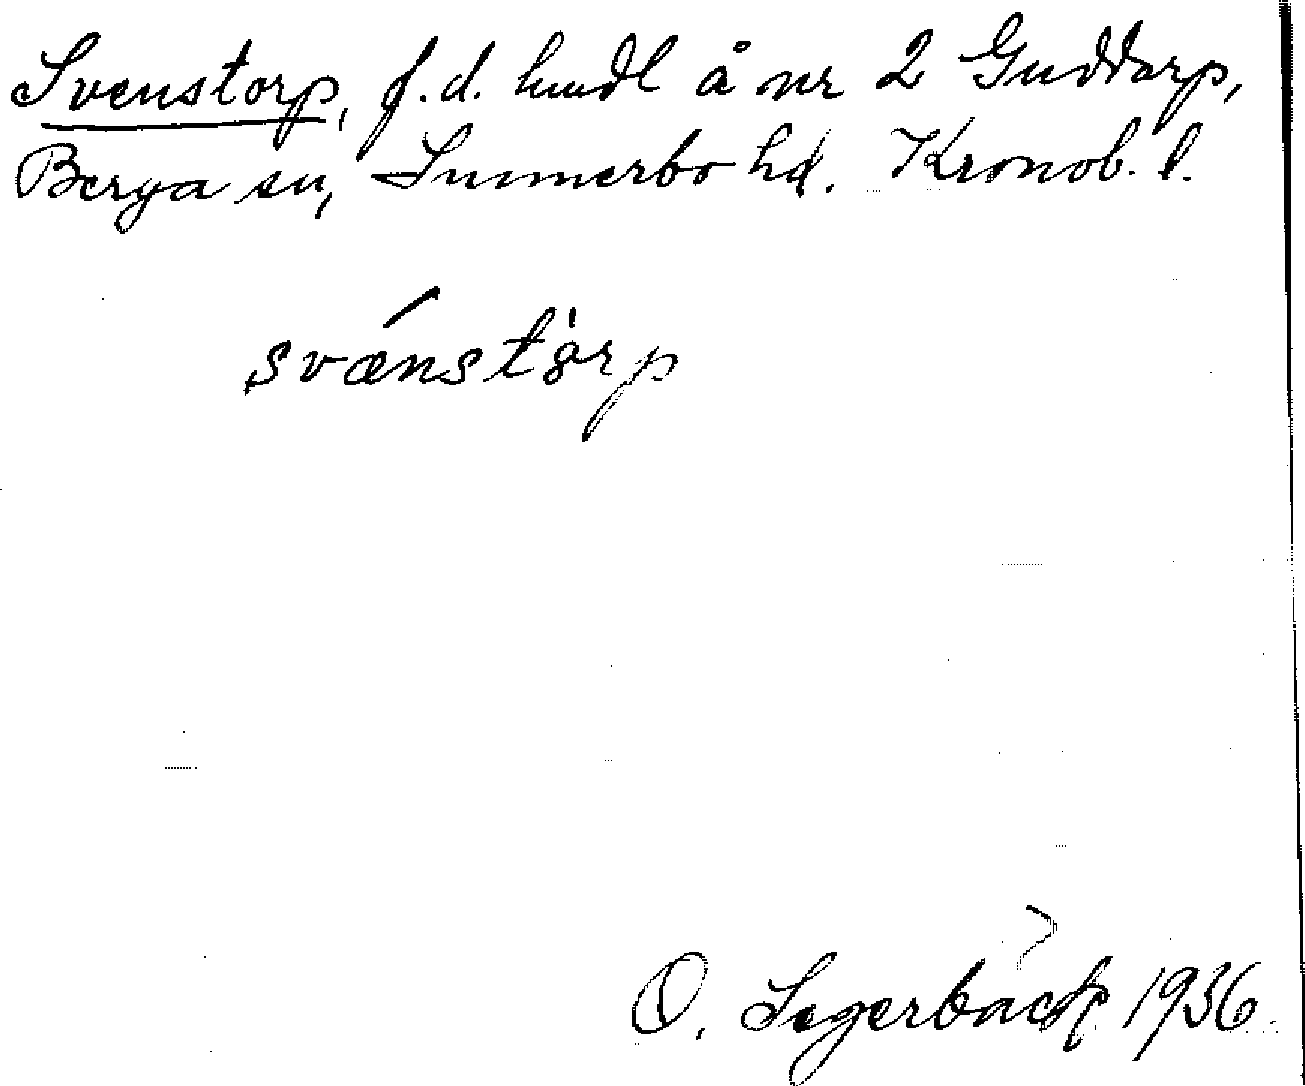 Svenstorp, f.d. hmdl å nr 2 Guddarp,
Berga sn, Sunnerbo hd. Kronob. l.
svǽnstårp
O. Segerbäck 1936